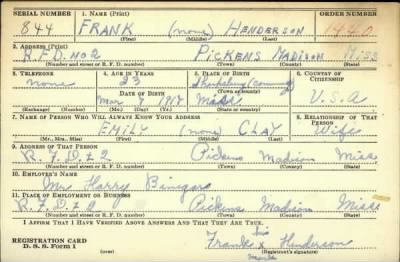 SERIAL NUMBER 1. NAME (Print) ORDER NUMBER
844 FRANK (none) HENDERSON 1440
(First) (Middle) (Last)
2. ADDRESS (Print)
R.F.D. No 2 PICKENS MADISON MISS
(Number and street or R. F. D. number) (Town) (County) (State)
3. TELEPHONE 4. AGE IN YEARS 5. PLACE OF BIRTH 6. COUNTRY OF CITIZENSHIP
none 23 (County)
DATE OF BIRTH (Town or county)
Mar 7 1917 Miss U.S.A
(Exchange) (Number) (Mo.) (Day) (Yr.) (State or country)
7. NAME OF PERSON WHO WILL ALWAYS KNOW YOUR ADDRESS 8. RELATIONSHIP OF THAT PERSON
EMILY (none) CLAY Wife
(Mr., Mrs., Miss) (First) (Middle) (Last)
9. ADDRESS OF THAT PERSON
R.F.D. #2 Pickens Madison Miss
(Number and street or R. F. D. number) (Town) (County) (State)
10. EMPLOYER'S NAME
Mrs Harry
11. PLACE OF EMPLOYMENT OR BUSINESS
R.F.D. #2 Pickens Madison Miss
(Number and street or R. F. D. number) (Town) (County) (State)
I AFFIRM THAT I HAVE VERIFIED ABOVE ANSWERS AND THAT THEY ARE TRUE.
REGISTRATION CARD his
D. S. S. Form 1 Frank x Henderson
(over) mark (Registrant's signature)